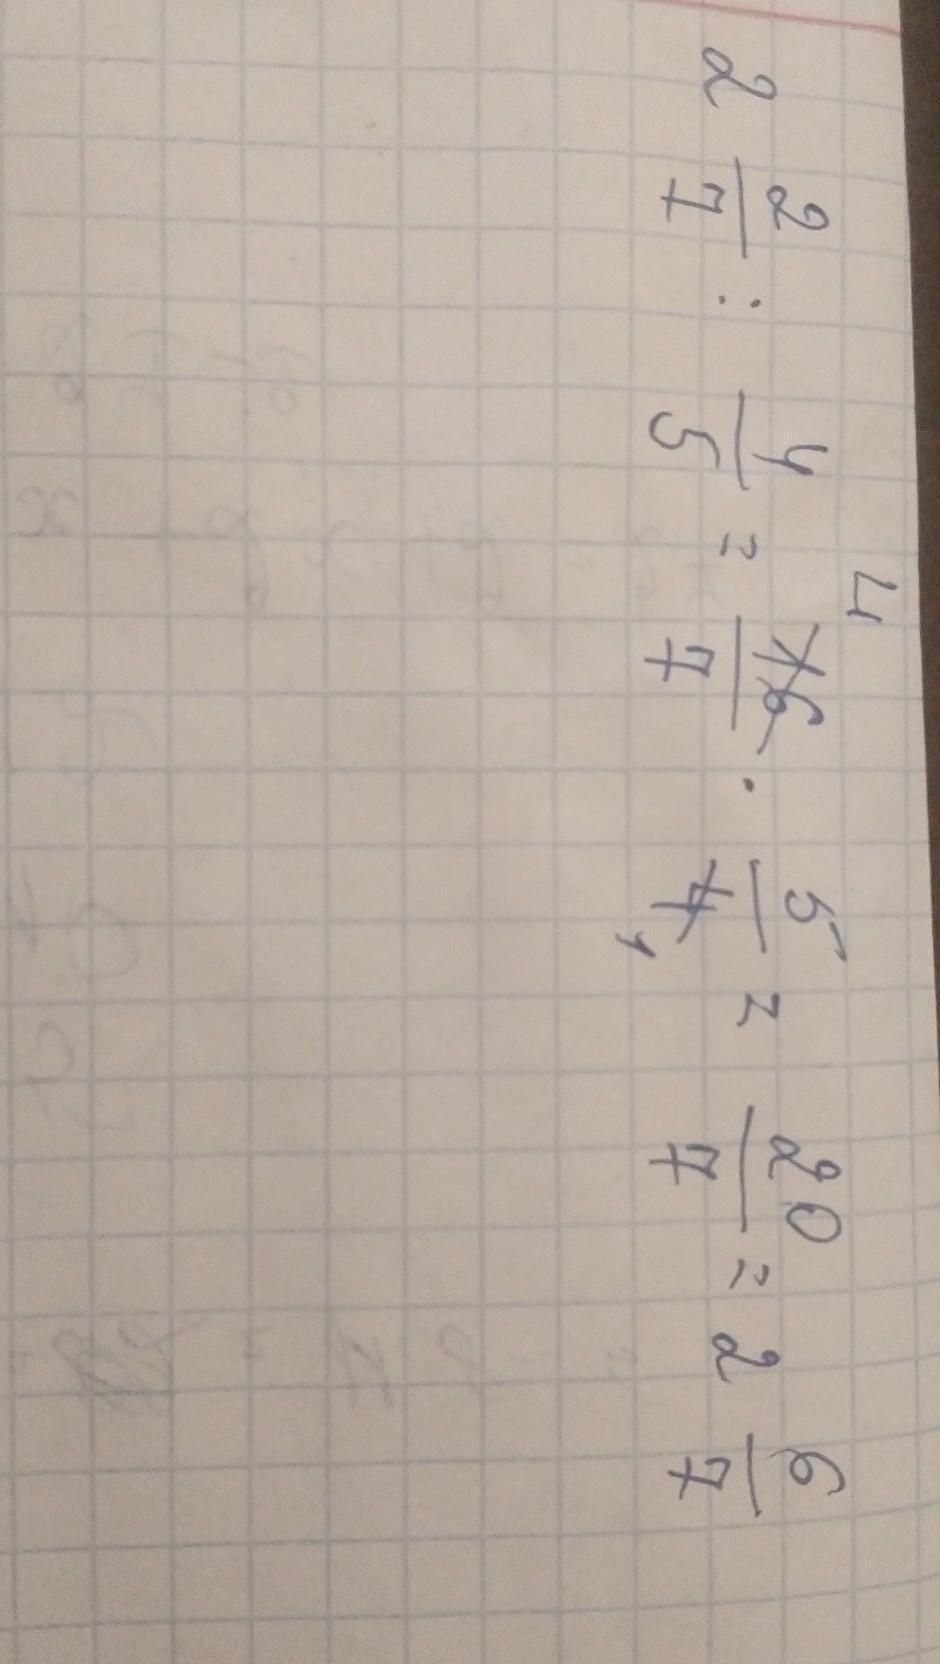 2 2/7 : 4/5 = 16/7 · 5/4 = 20/7 = 2 6/7
4
1